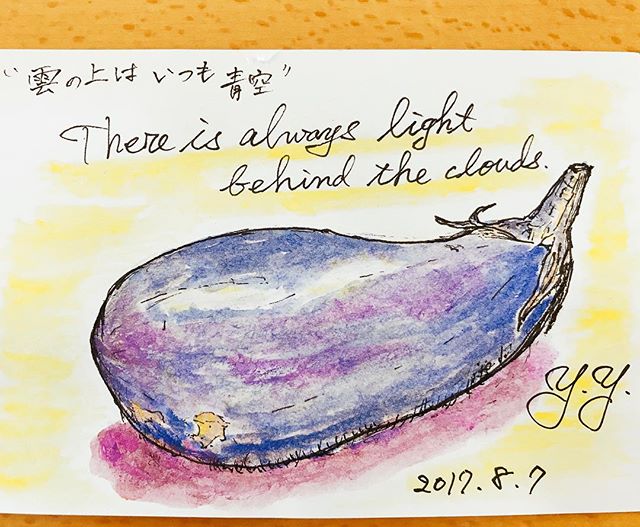 "雲の上は いつも 青空"
There is always light
behind the clouds.
Y.Y.
2017.8.7